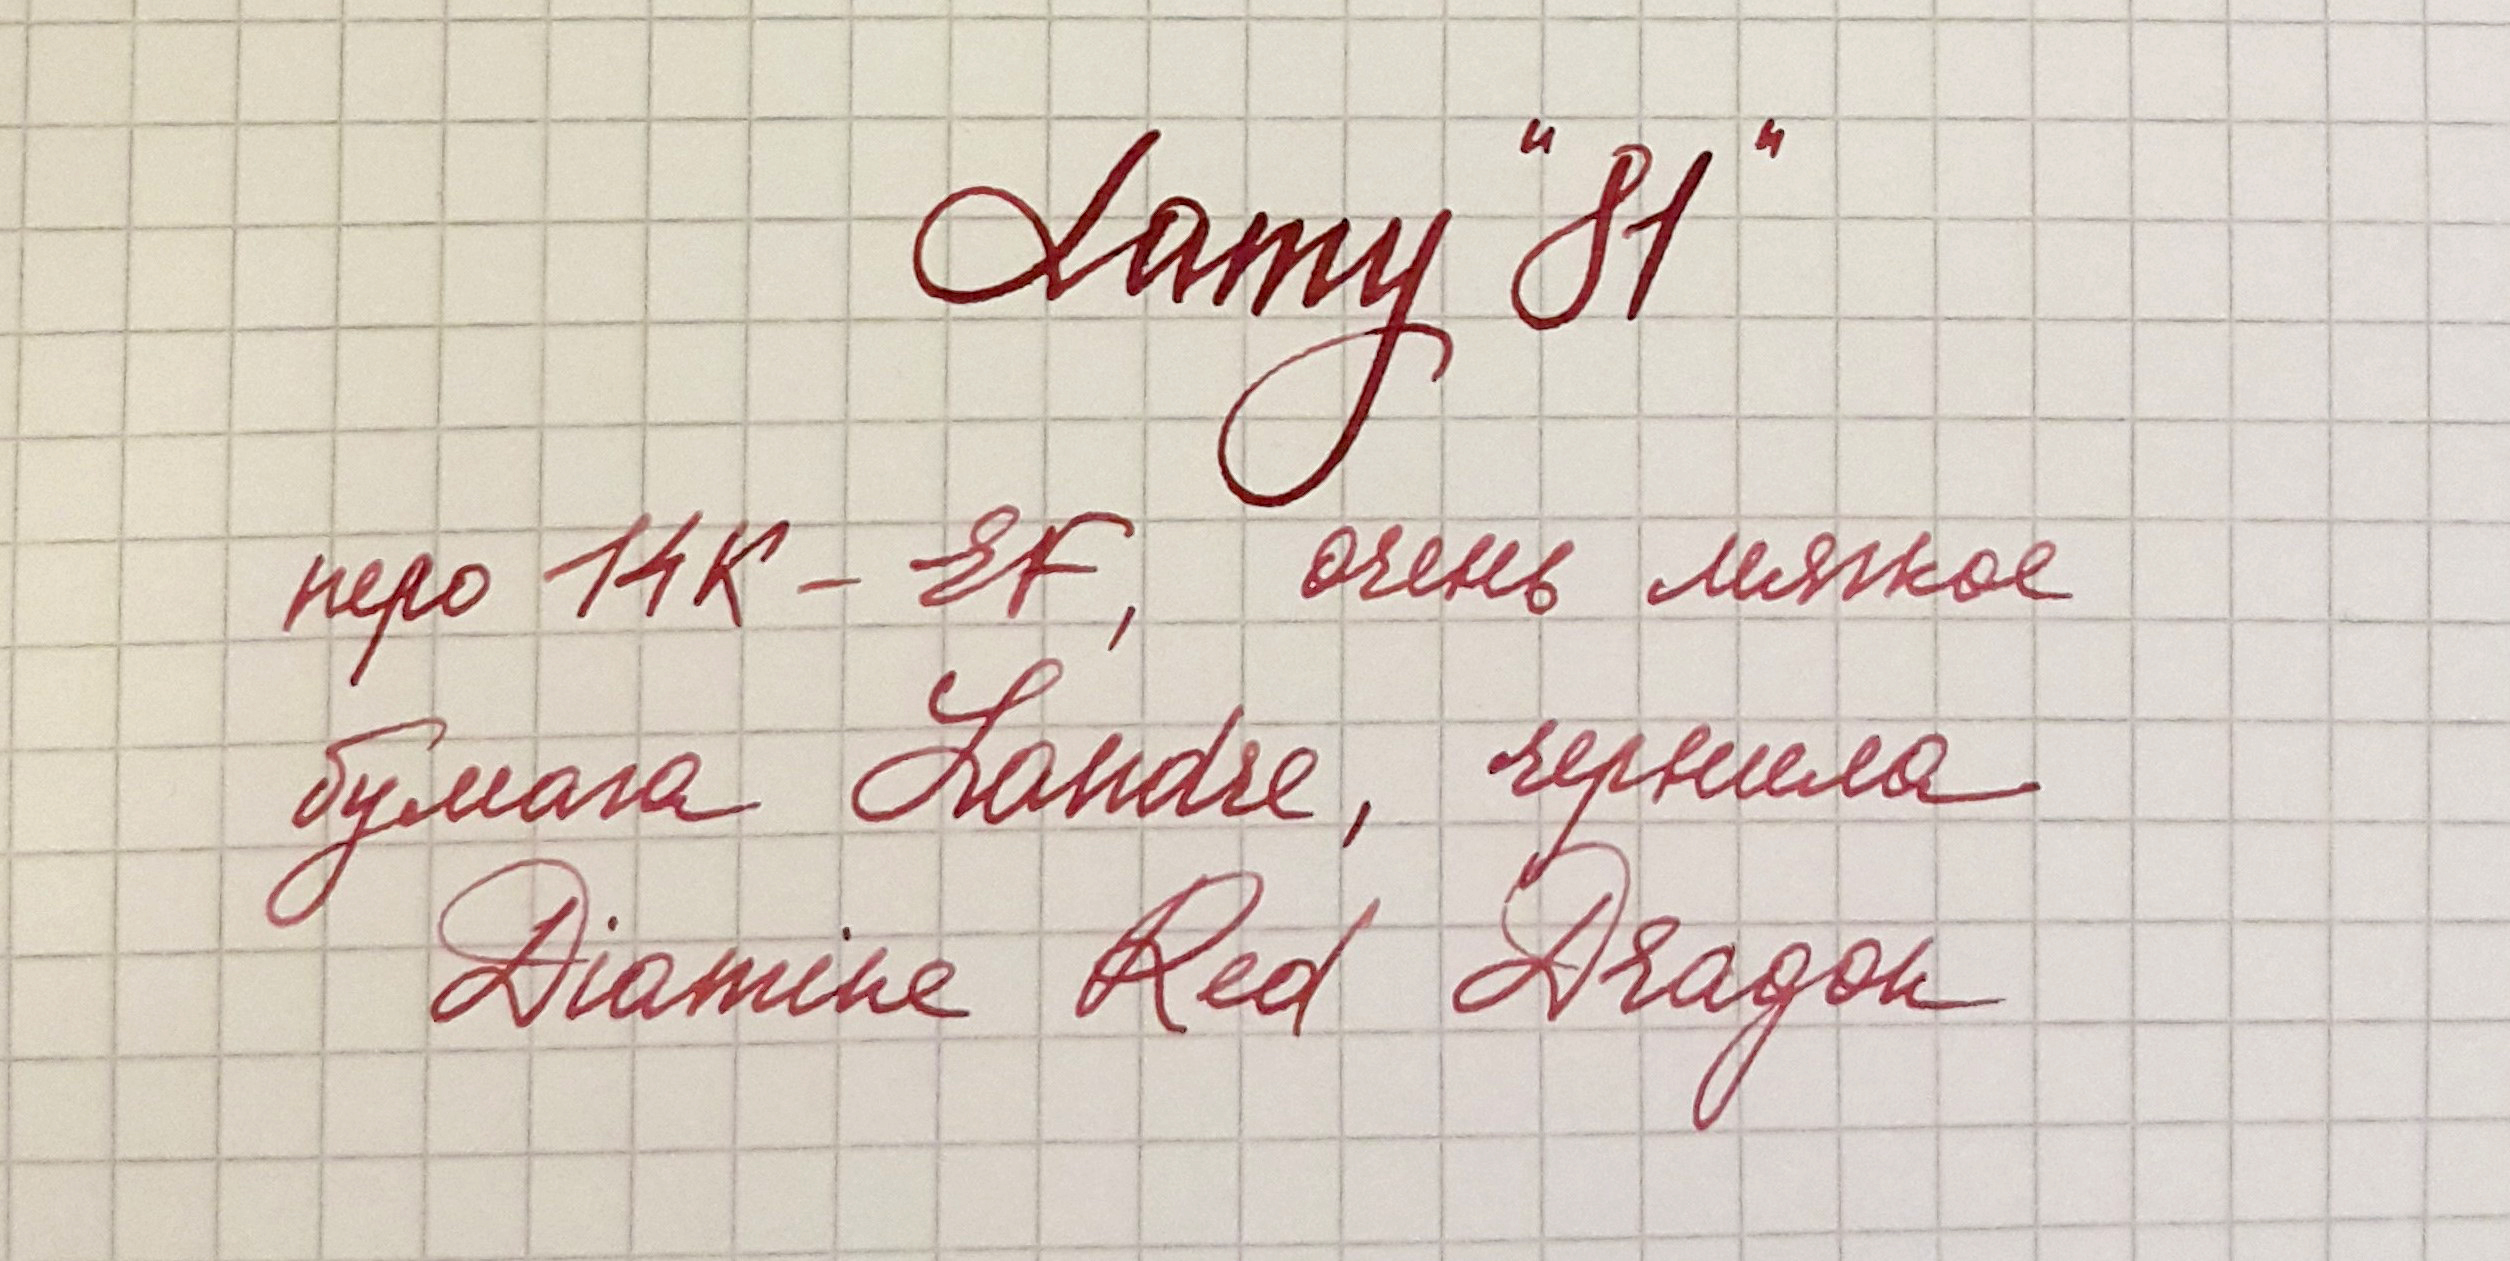 Lamy "81"
перо 14K - EF, очень мягкое
бумага Landre, чернила
Diamine Red Dragon